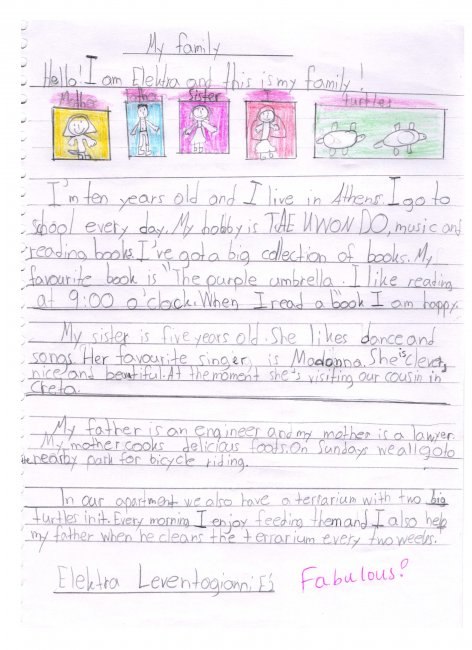 My family
Hello! I am Elektra and this is my family!
Mother Father Sister I turtles
I'm ten years old and I live in Athens. I go to
school every day. My hobby is TAE KWON DO, music and
reading books. I've got a big collection of books. My
favourite book is "The purple umbrella. I like reading
at 9:00 o'clock. When I read a book I am happy.
My sister is five years old. She likes dance and
songs. Her favourite singer is Madonna. She is clever,
nice and beautiful. At the moment she's visiting our cousin in
Creta.
My father is an engineer and my mother is a lawyer.
My mother cooks delicious foots. On Sundays we all go to
the nearby park for bicycle riding.
In our apartment we also have a terrarium with two big
turtles in it. Every morning I enjoy feeding them and I also help
my father when he cleans the terrarium every two weeks.
Elektra Leventogianni E'3
Fabulous!